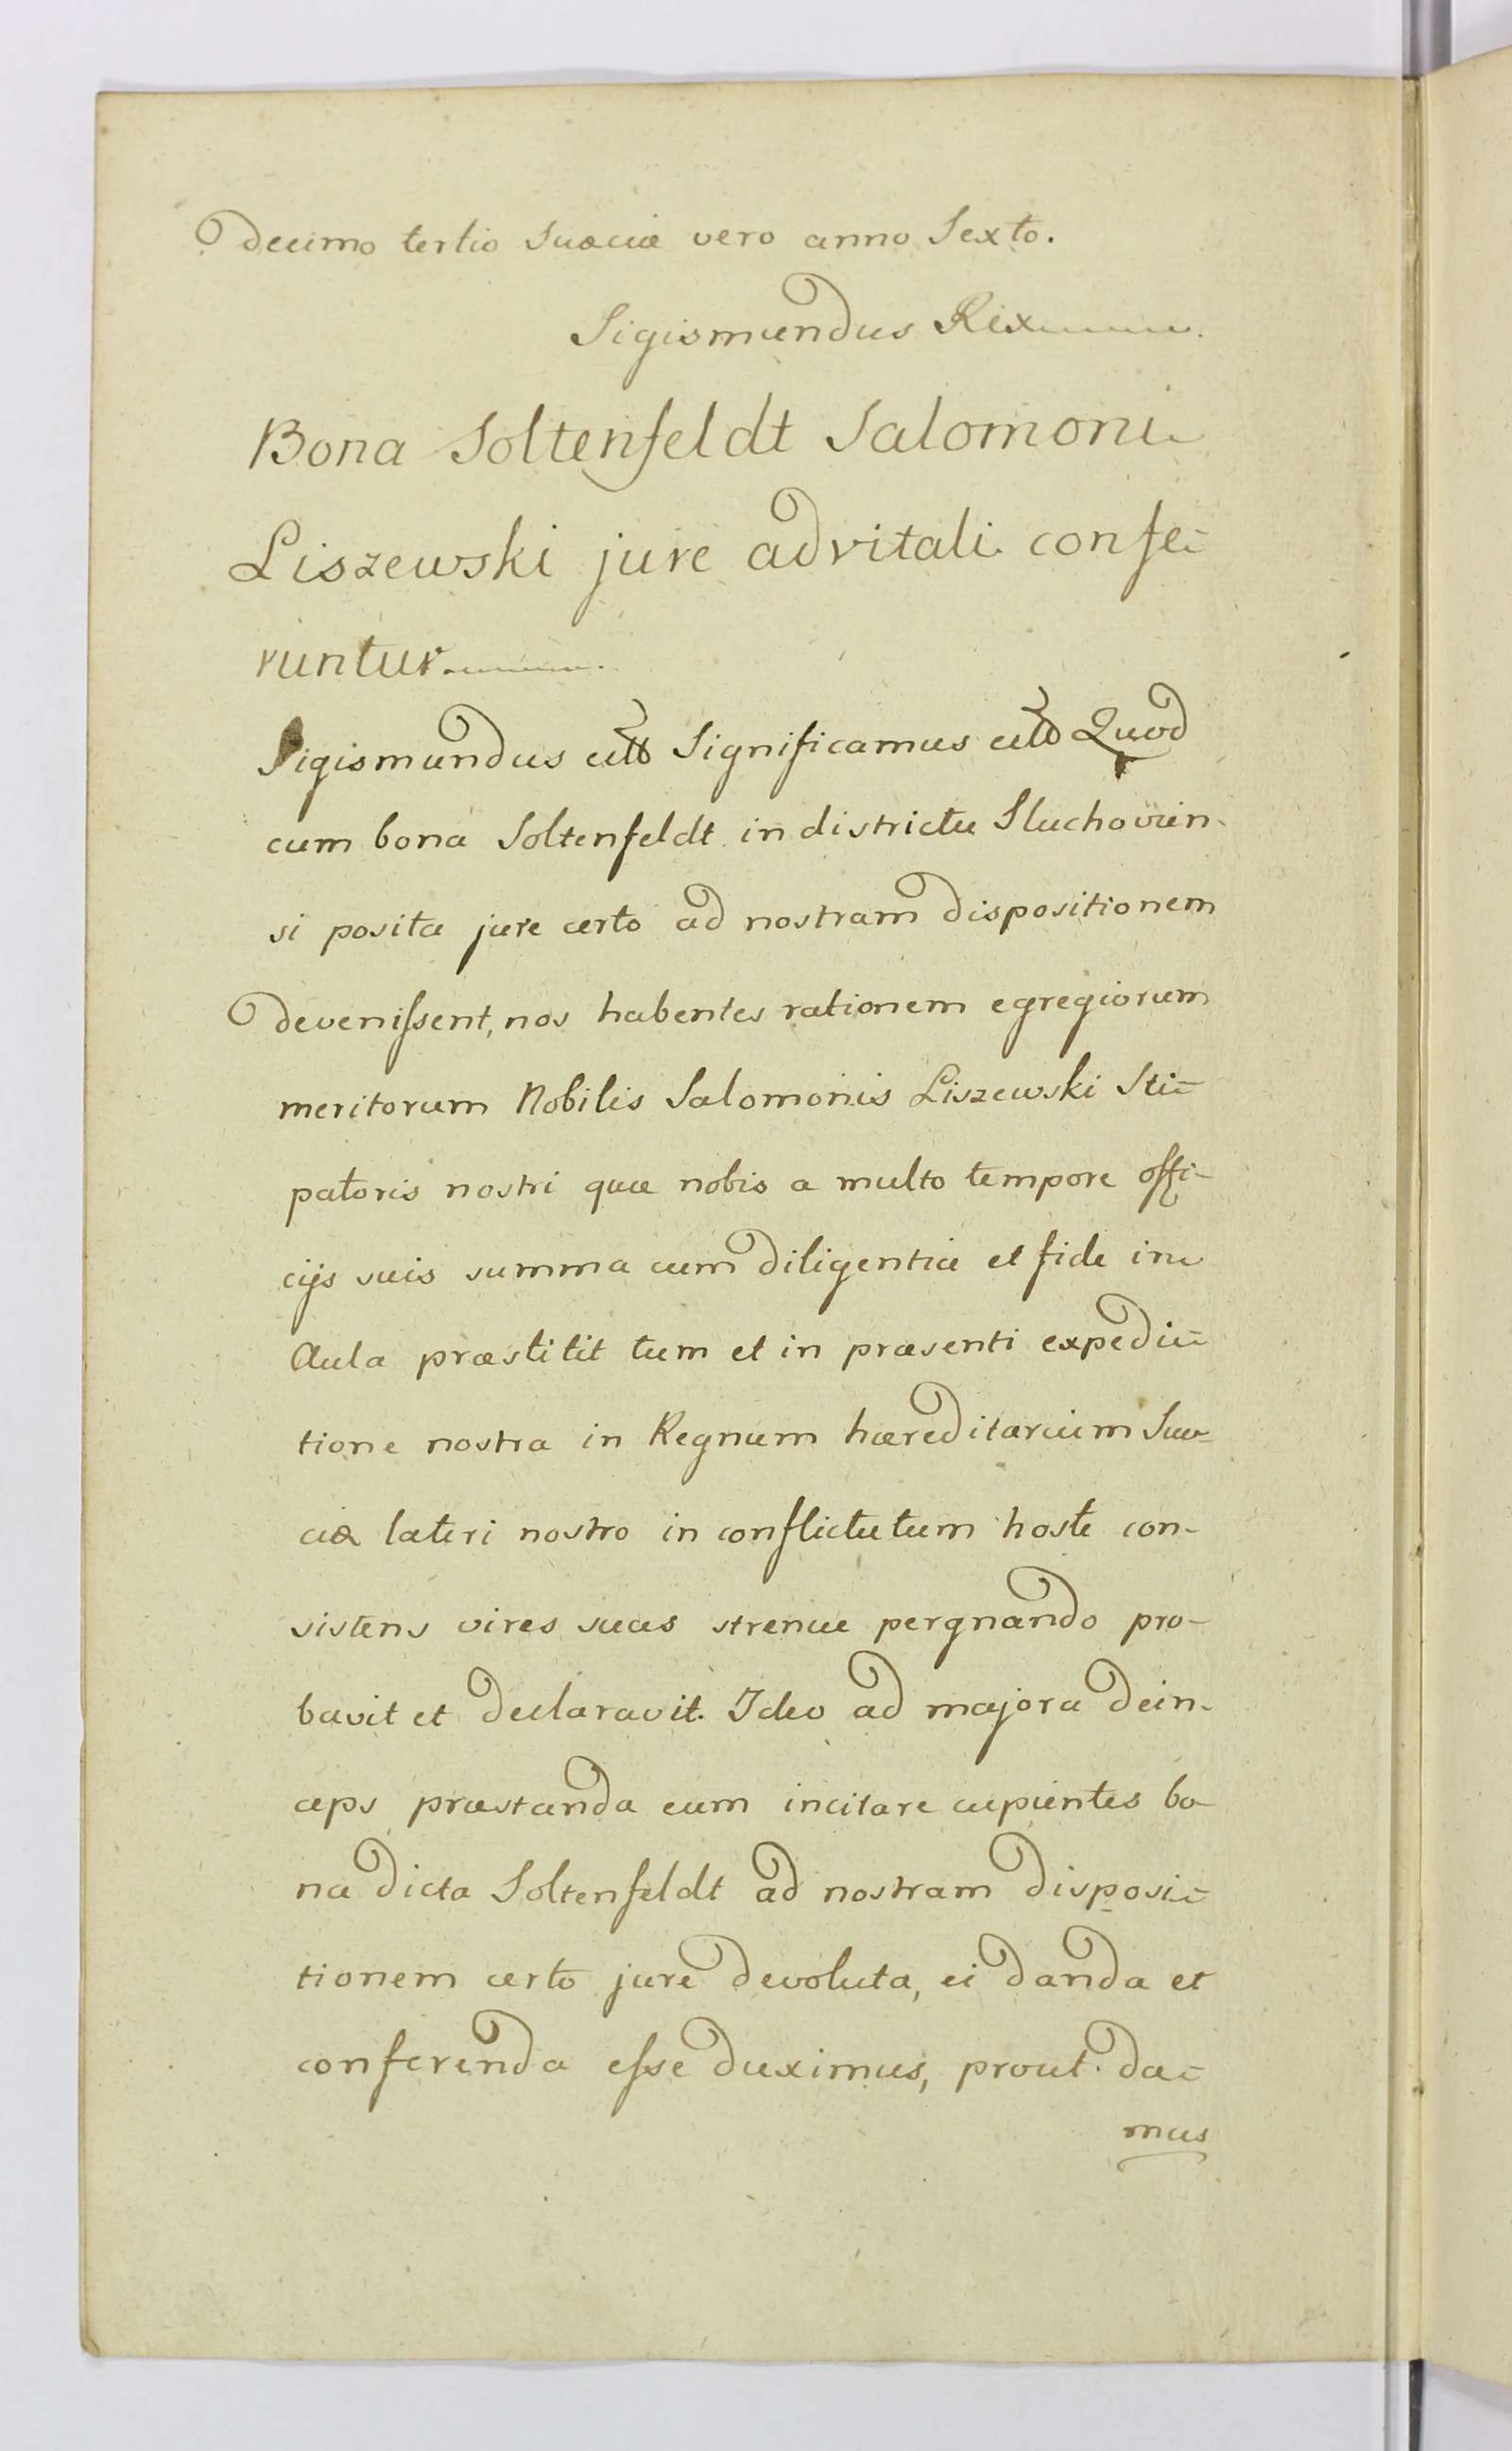 decimo tertio Suæciæ vero anno Sexto.
Sigismundus Rex
Bona Soltenfeldt Salomoni
Liszewski jure advitali confe-
runtur
Sigismundus Significamus Quod
cum bona Soltenfeldt in districtu Sluchovien-
si posita jure certo ad nostram dispositionem
devenissent, nos habentes rationem egregiorum
meritorum Nobilis Salomonis Liszewski Sti-
patoris nostri quæ nobis a multo tempore offi-
cijs suis summa cum diligentia et fide in
Aula præstitit tum et in præsenti expedi-
tione nostra in Regnum hæreditarium Suæ-
ciæ lateri nostro in conflictu tum hoste con-
sistens vires suas strenue pergnando pro-
bavit et declaravit. Ideo ad majora dein-
ceps præstanda eum incitare cupientes bo-
na dicta Soltenfeldt ad nostram disposi-
tionem certo jure devoluta, ei danda et
conferenda esse duximus, prout da-
mus